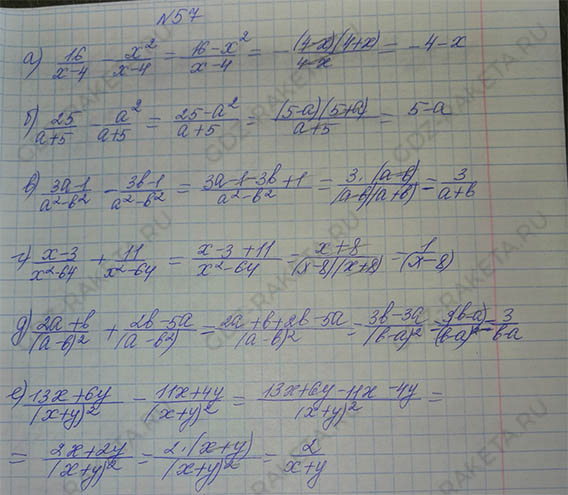 №57
а) 16/(x-4) - x²/(x-4) = (16-x²)/(x-4) = - (4-x)(4+x)/(4-x) = -4-x
б) 25/(a+5) - a²/(a+5) = (25-a²)/(a+5) = (5-a)(5+a)/(a+5) = 5-a
в) (3a-1)/(a²-b²) - (3b-1)/(a²-b²) = (3a-1-3b+1)/(a²-b²) = 3·(a-b)/(a-b)(a+b) = 3/(a+b)
г) (x-3)/(x²-64) + 11/(x²-64) = (x-3+11)/(x²-64) = (x+8)/(x-8)(x+8) = 1/(x-8)
д) (2a+b)/(a-b)² + (2b-5a)/(a-b²) = (2a+b+2b-5a)/(a-b)² = (3b-3a)/(b-a)² = 3(b-a)/(b-a)² = 3/(b-a)
е) (13x+6y)/(x+y)² - (11x+4y)/(x+y)² = (13x+6y-11x-4y)/(x+y)² =
= (2x+2y)/(x+y)² = 2·(x+y)/(x+y)² = 2/(x+y)
GDZ-RAKETA.RU